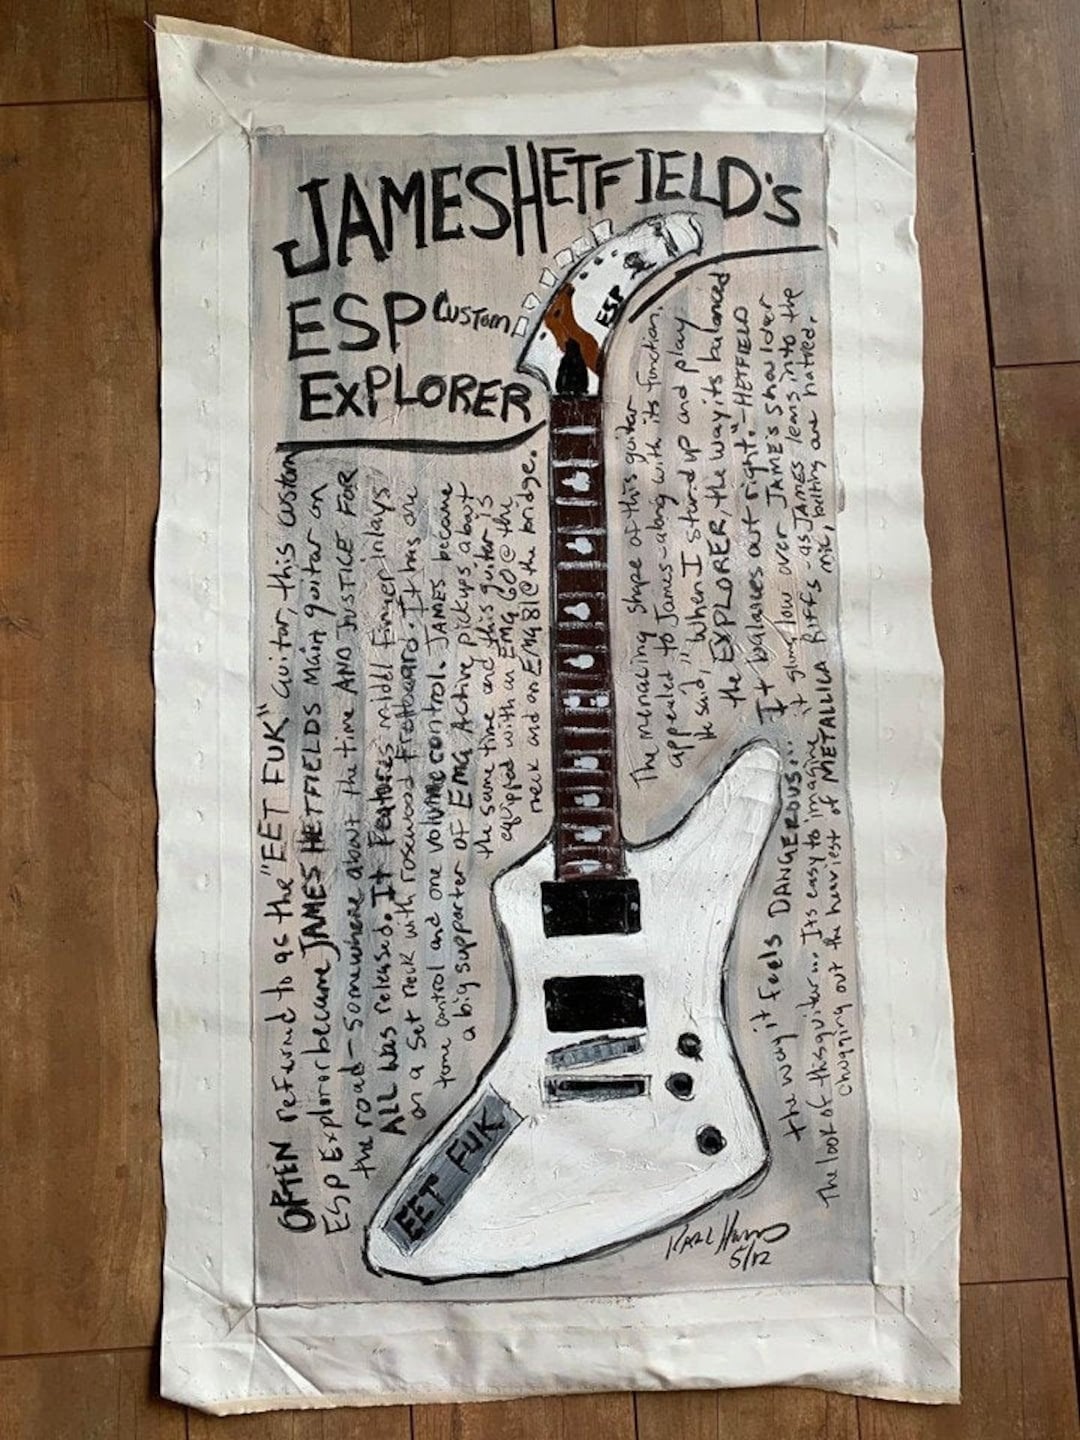 JAMES HETFIELD's
ESP CUSTOM
EXPLORER
ESP
OFTEN referred to as the "EET FUK" Guitar, this custom
ESP Explorer became JAMES HETFIELDS Main guitar on
the road - somewhere about the time AND JUSTICE FOR
ALL was released. It Features middel Finger inlays
on a set neck with rosewood Fretboard. It has one
tone control and one volume control. JAMES became
a big supporter of EMG Active pickups about
the same time and this guitar is
equipped with an EMG 60 @ the
neck and an EMG 81 @ the bridge.
The menacing shape of this guitar
appealed to James - along with its function.
he said, "When I stand up and play
the EXPLORER, the way its balanced
It balances out right." - HETFIELD
the way it feels DANGEROUS... it slung low over JAME'S shoulder
The look of this guitar... Its easy to imagine RIFFS - as JAMES leans into the
chugging out the heaviest of METALLICA mic, belting out hatred.
EET FUK
5/12